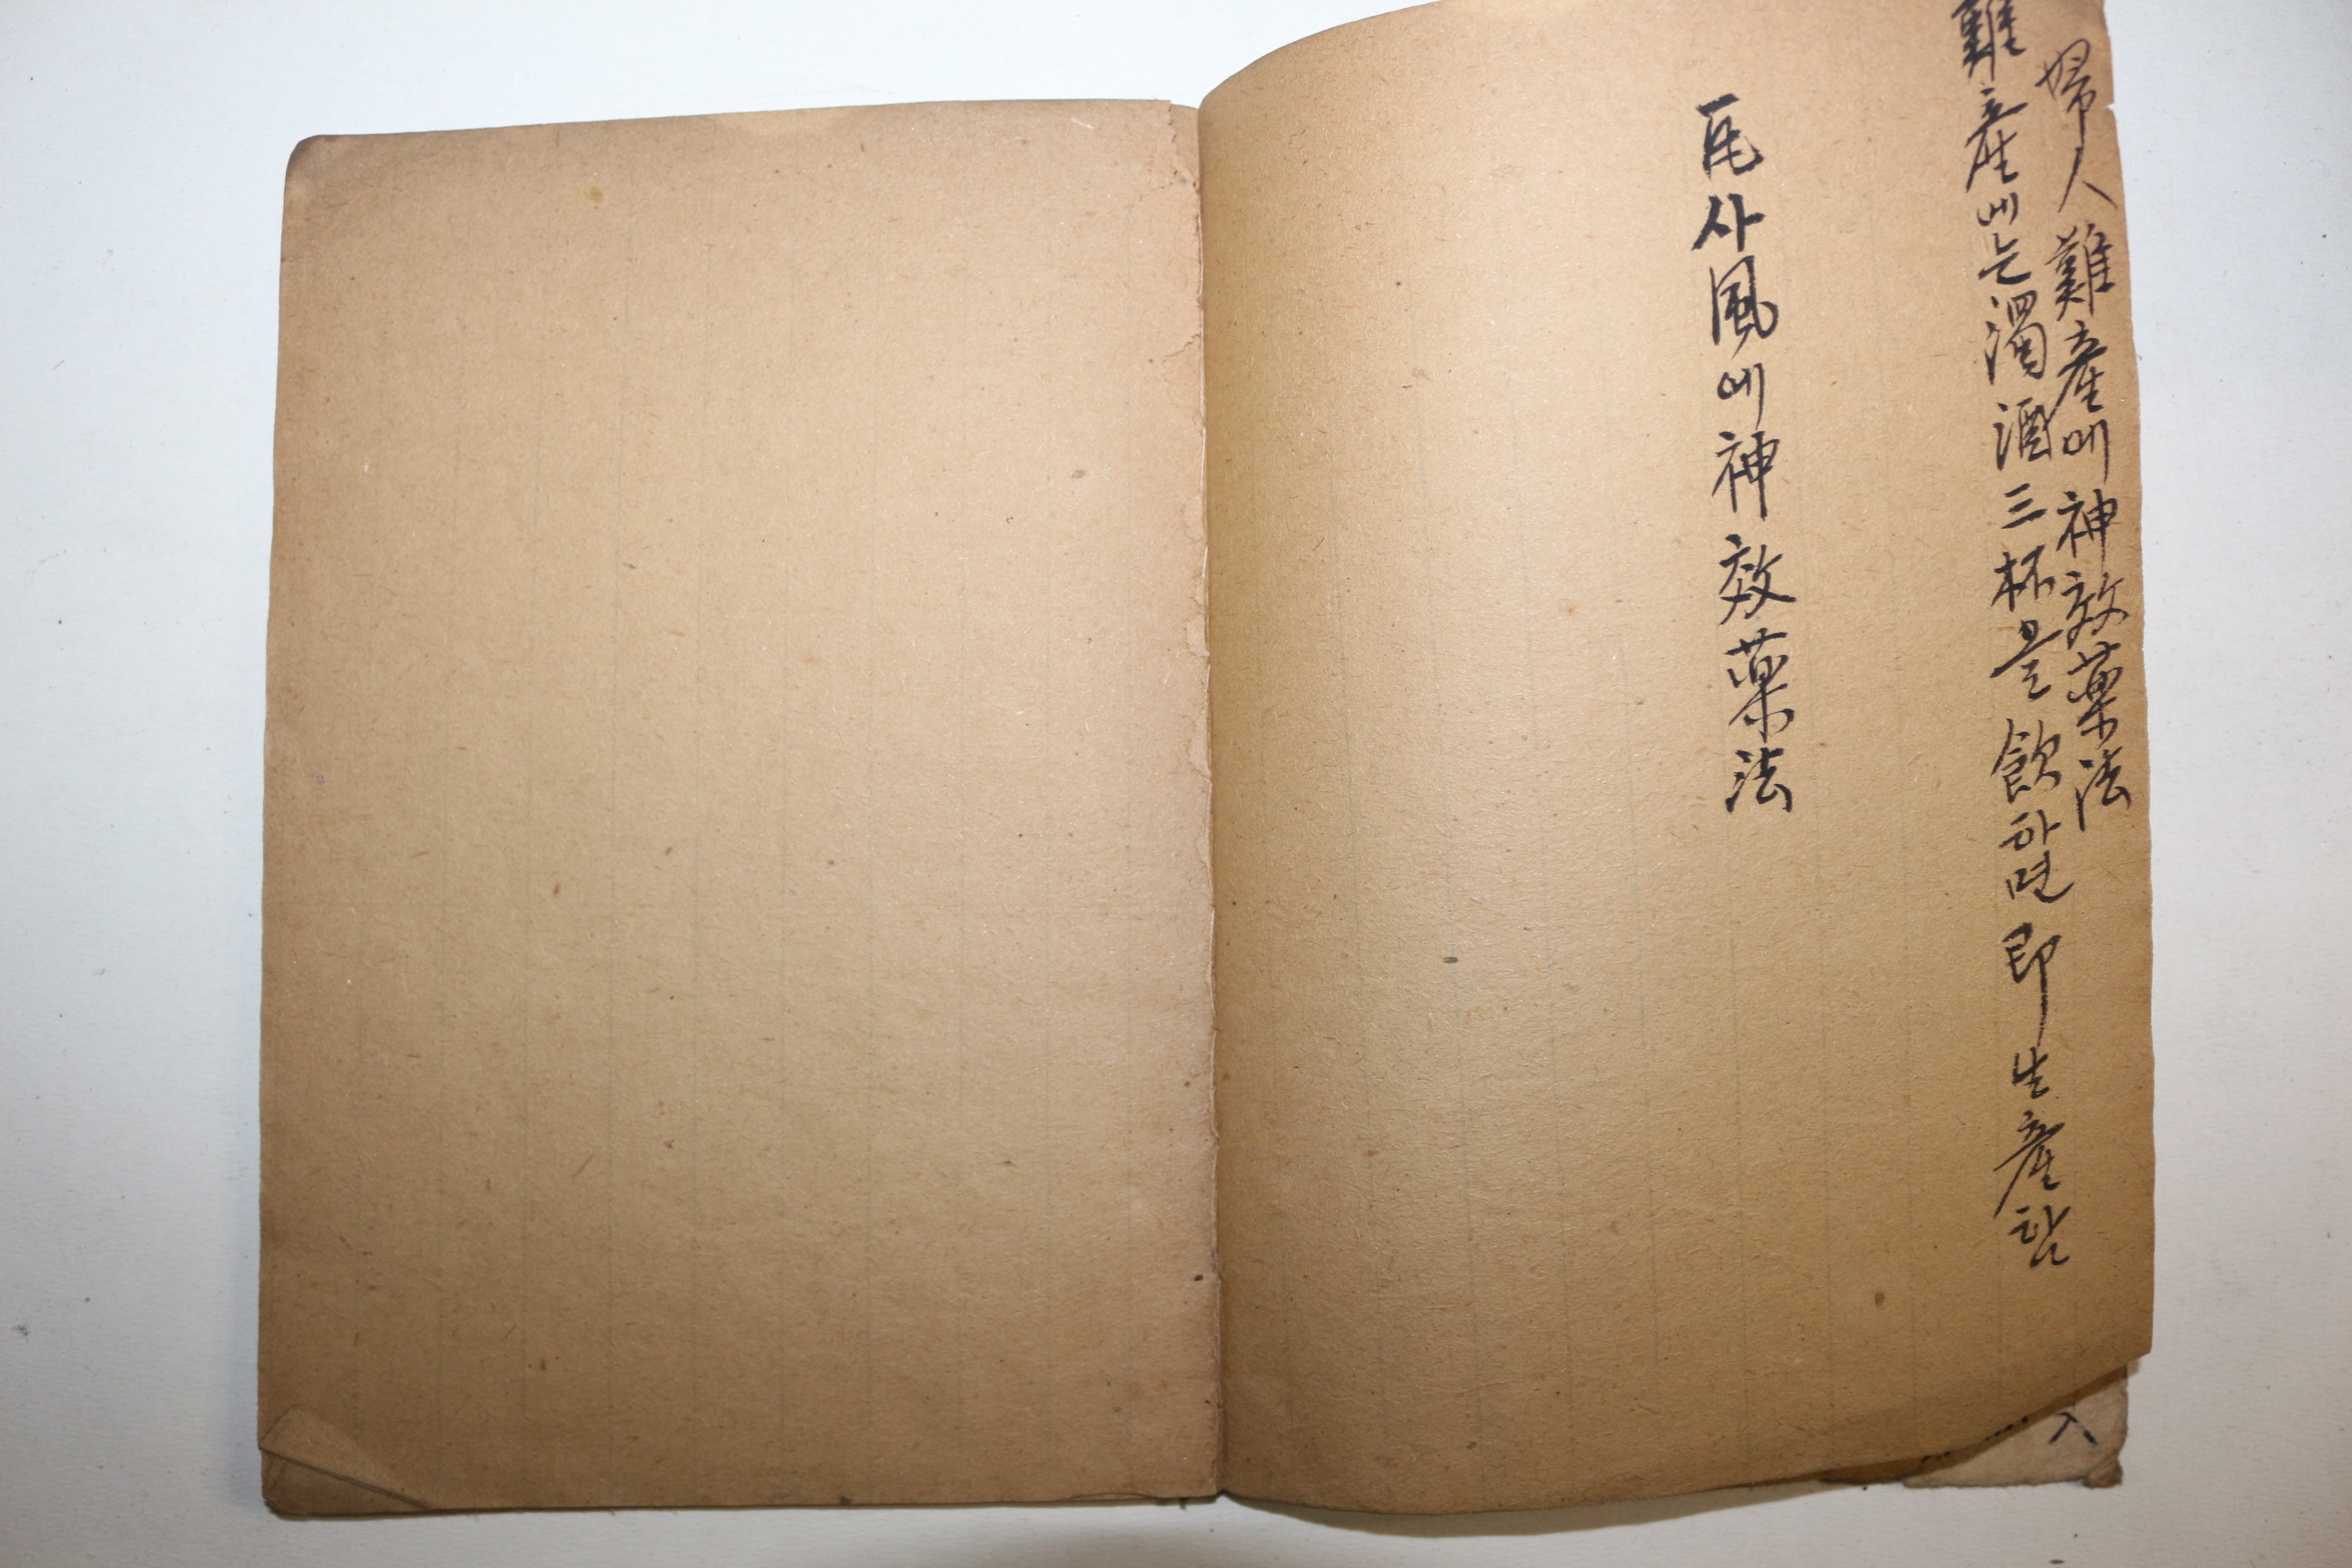 婦人難産에神效薬法
難産에는濁酒三杯을飮하면即生産함
사風에神效薬法
入